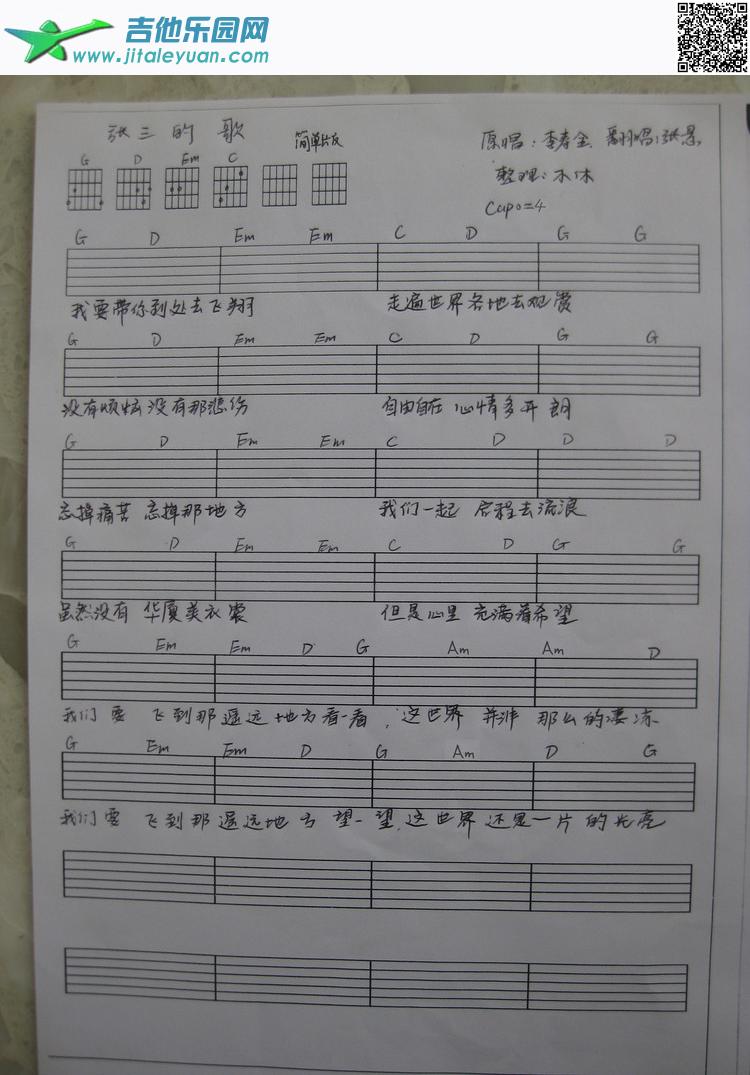 吉他乐园网
www.jitaleyuan.com
张三的歌 简单版 原唱：李寿全 翻唱：张悬
整理：木木
G D Em C
Capo=4
G D Em Em C D G G
我要带你到处去飞翔 走遍世界各地去观赏
G D Em Em C D G G
没有烦恼 没有那悲伤 自由自在 心情多开朗
G D Em Em C D D D
忘掉痛苦 忘掉那地方 我们一起 启程去流浪
G D Em Em C D G G
虽然没有 华厦美衣裳 但是心里 充满着希望
G Em Em D G Am Am D
我们要 飞到那遥远地方看一看，这世界 并非 那么的凄凉
G Em Em D G Am D G
我们要 飞到那遥远地方 望一望，这世界还是一片的光亮